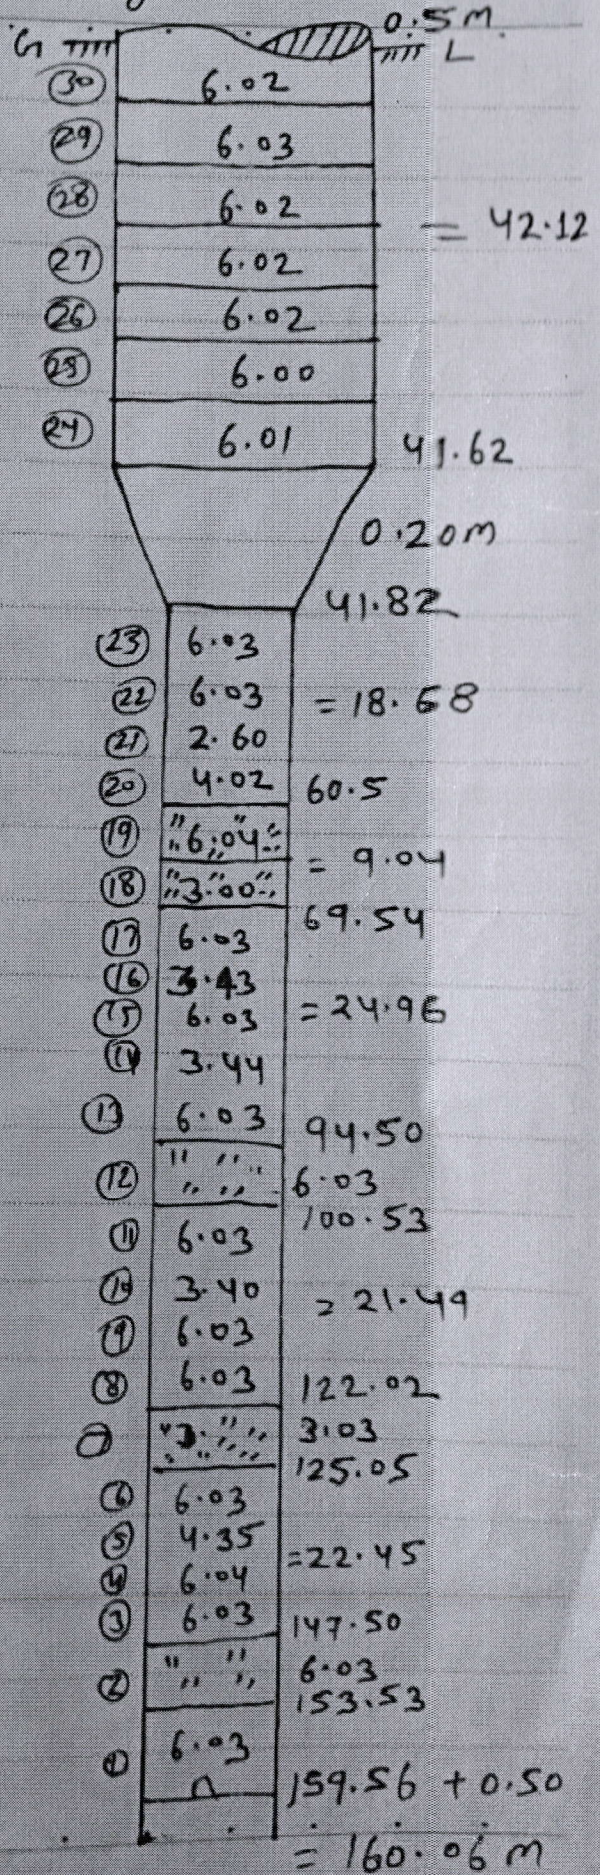 0.5M
G L
30 6.02
29 6.03
28 6.02 = 42.12
27 6.02
26 6.02
25 6.00
24 6.01 41.62
0.20m
41.82
23 6.03
22 6.03 = 18.68
21 2.60
20 4.02 60.5
19 "6.04"
= 9.04
18 "3.00"
69.54
17 6.03
16 3.43
15 6.03 = 24.96
14 3.44
13 6.03 94.50
12 6.03
100.53
11 6.03
10 3.40 = 21.49
9 6.03
8 6.03 122.02
7 3. 3.03
125.05
6 6.03
5 4.35 = 22.45
4 6.04
3 6.03 147.50
2 6.03
153.53
1 6.03
159.56 + 0.50
= 160.06 m